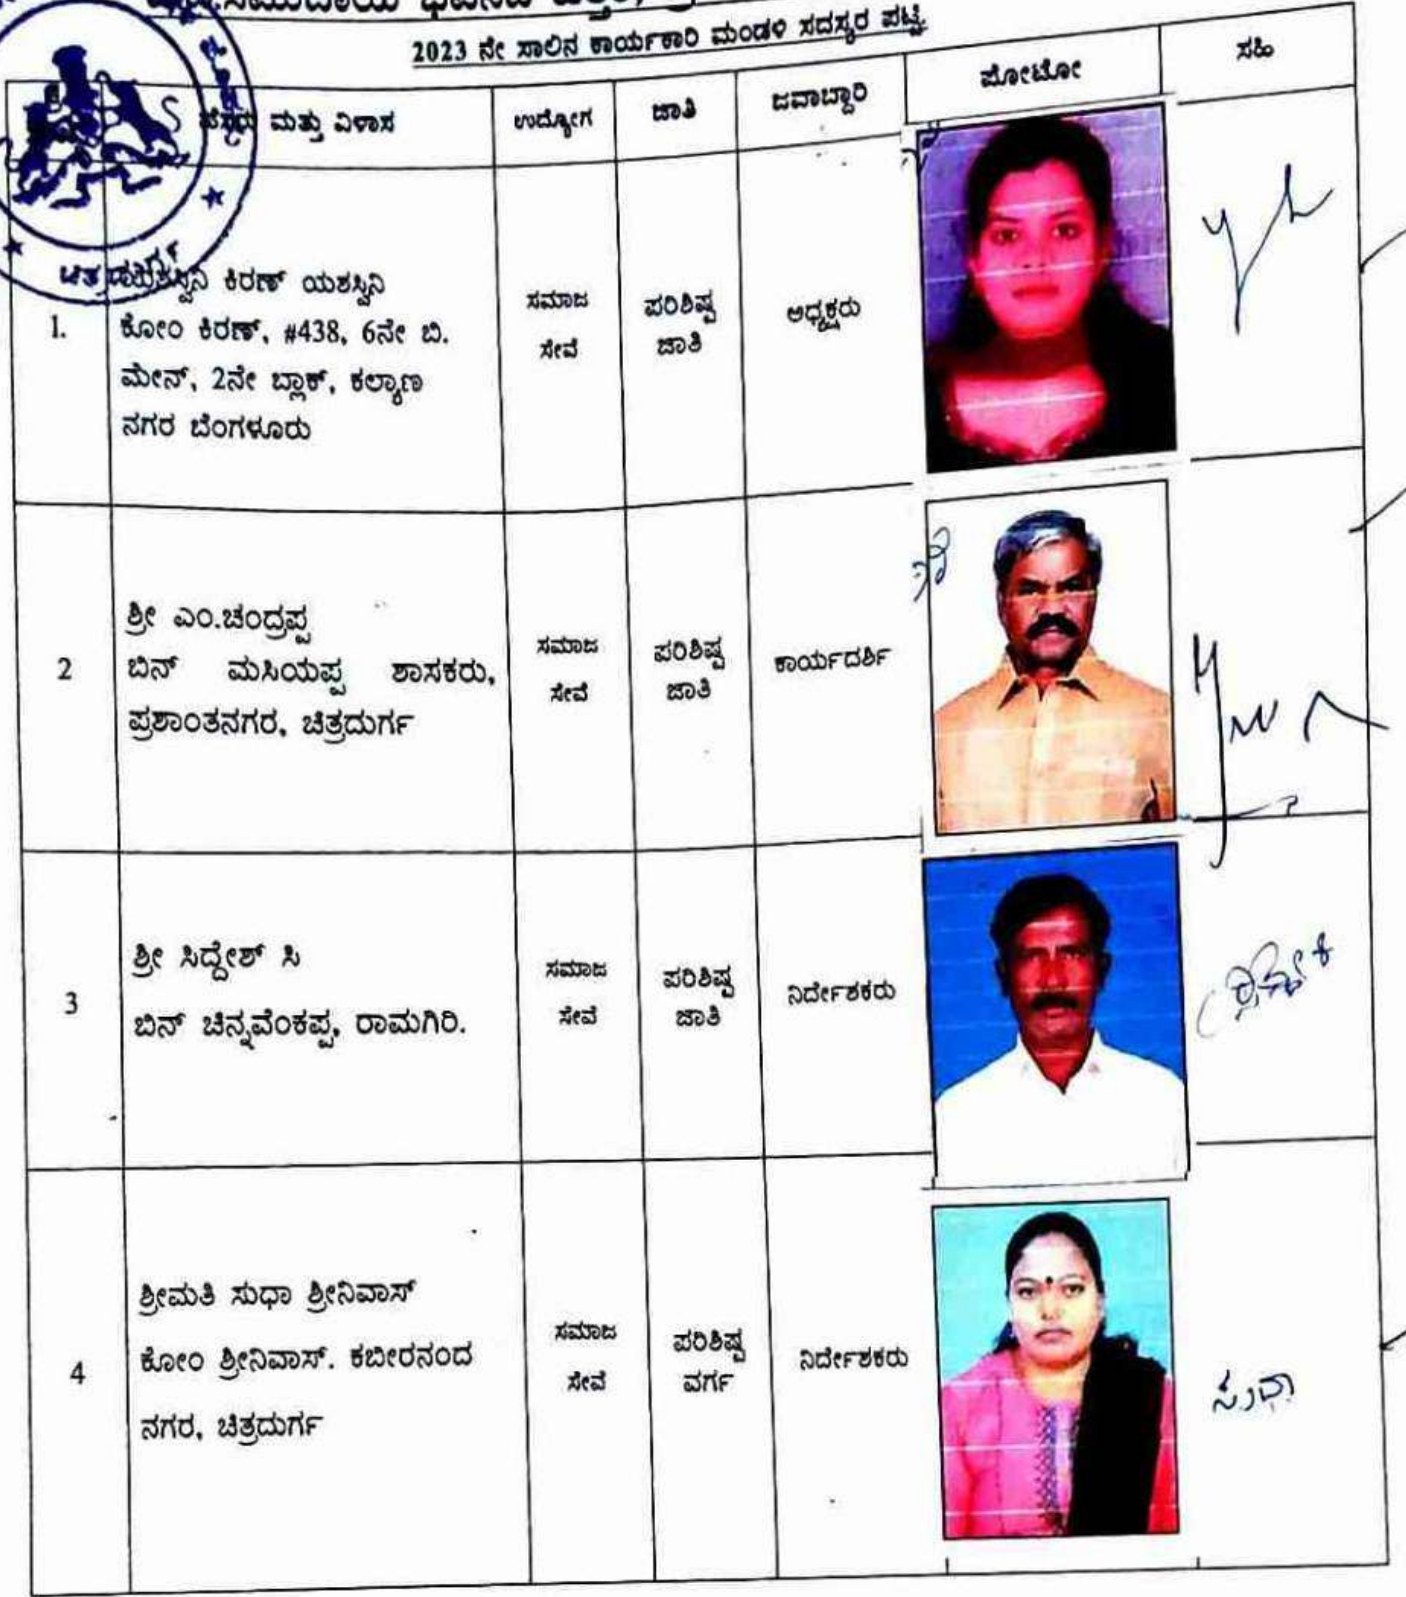 2023 ನೇ ಸಾಲಿನ ಕಾರ್ಯಕಾರಿ ಮಂಡಳಿ ಸದಸ್ಯರ ಪಟ್ಟಿ
ಹೆಸರು ಮತ್ತು ವಿಳಾಸ
ಉದ್ಯೋಗ
ಜಾತಿ
ಜವಾಬ್ದಾರಿ
ಪೋಟೋ
ಸಹಿ
1.
ಯಶಸ್ವಿನಿ ಕಿರಣ್ ಯಶಸ್ವಿನಿ
ಕೋಂ ಕಿರಣ್, #438, 6ನೇ ಬಿ.
ಮೇನ್, 2ನೇ ಬ್ಲಾಕ್, ಕಲ್ಯಾಣ
ನಗರ ಬೆಂಗಳೂರು
ಸಮಾಜ
ಸೇವೆ
ಪರಿಶಿಷ್ಟ
ಜಾತಿ
ಅಧ್ಯಕ್ಷರು
2
ಶ್ರೀ ಎಂ.ಚಂದ್ರಪ್ಪ
ಬಿನ್ ಮಸಿಯಪ್ಪ ಶಾಸಕರು,
ಪ್ರಶಾಂತನಗರ, ಚಿತ್ರದುರ್ಗ
ಸಮಾಜ
ಸೇವೆ
ಪರಿಶಿಷ್ಟ
ಜಾತಿ
ಕಾರ್ಯದರ್ಶಿ
3
ಶ್ರೀ ಸಿದ್ದೇಶ್ ಸಿ
ಬಿನ್ ಚಿನ್ನವೆಂಕಪ್ಪ, ರಾಮಗಿರಿ.
ಸಮಾಜ
ಸೇವೆ
ಪರಿಶಿಷ್ಟ
ಜಾತಿ
ನಿರ್ದೇಶಕರು
4
ಶ್ರೀಮತಿ ಸುಧಾ ಶ್ರೀನಿವಾಸ್
ಕೋಂ ಶ್ರೀನಿವಾಸ್. ಕಬೀರನಂದ
ನಗರ, ಚಿತ್ರದುರ್ಗ
ಸಮಾಜ
ಸೇವೆ
ಪರಿಶಿಷ್ಟ
ವರ್ಗ
ನಿರ್ದೇಶಕರು
ಸುಧಾ